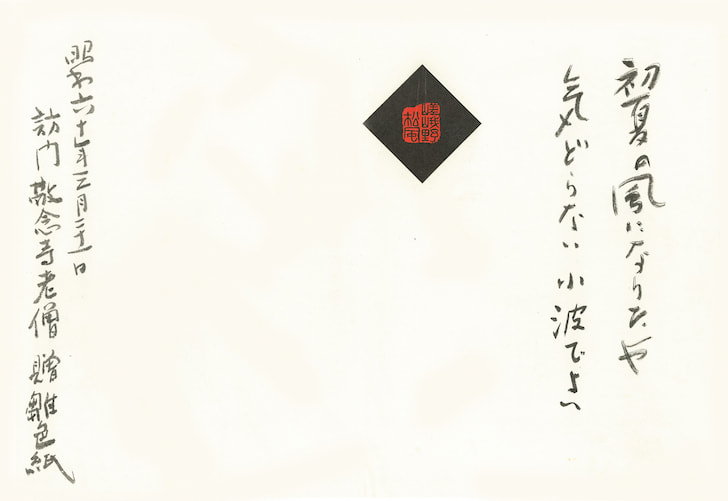 初夏の風になりたや
気どらない小波でよい
嵯峨野
松風
昭和六十年三月二十一日
訪門敬念寺老僧 贈雛色紙